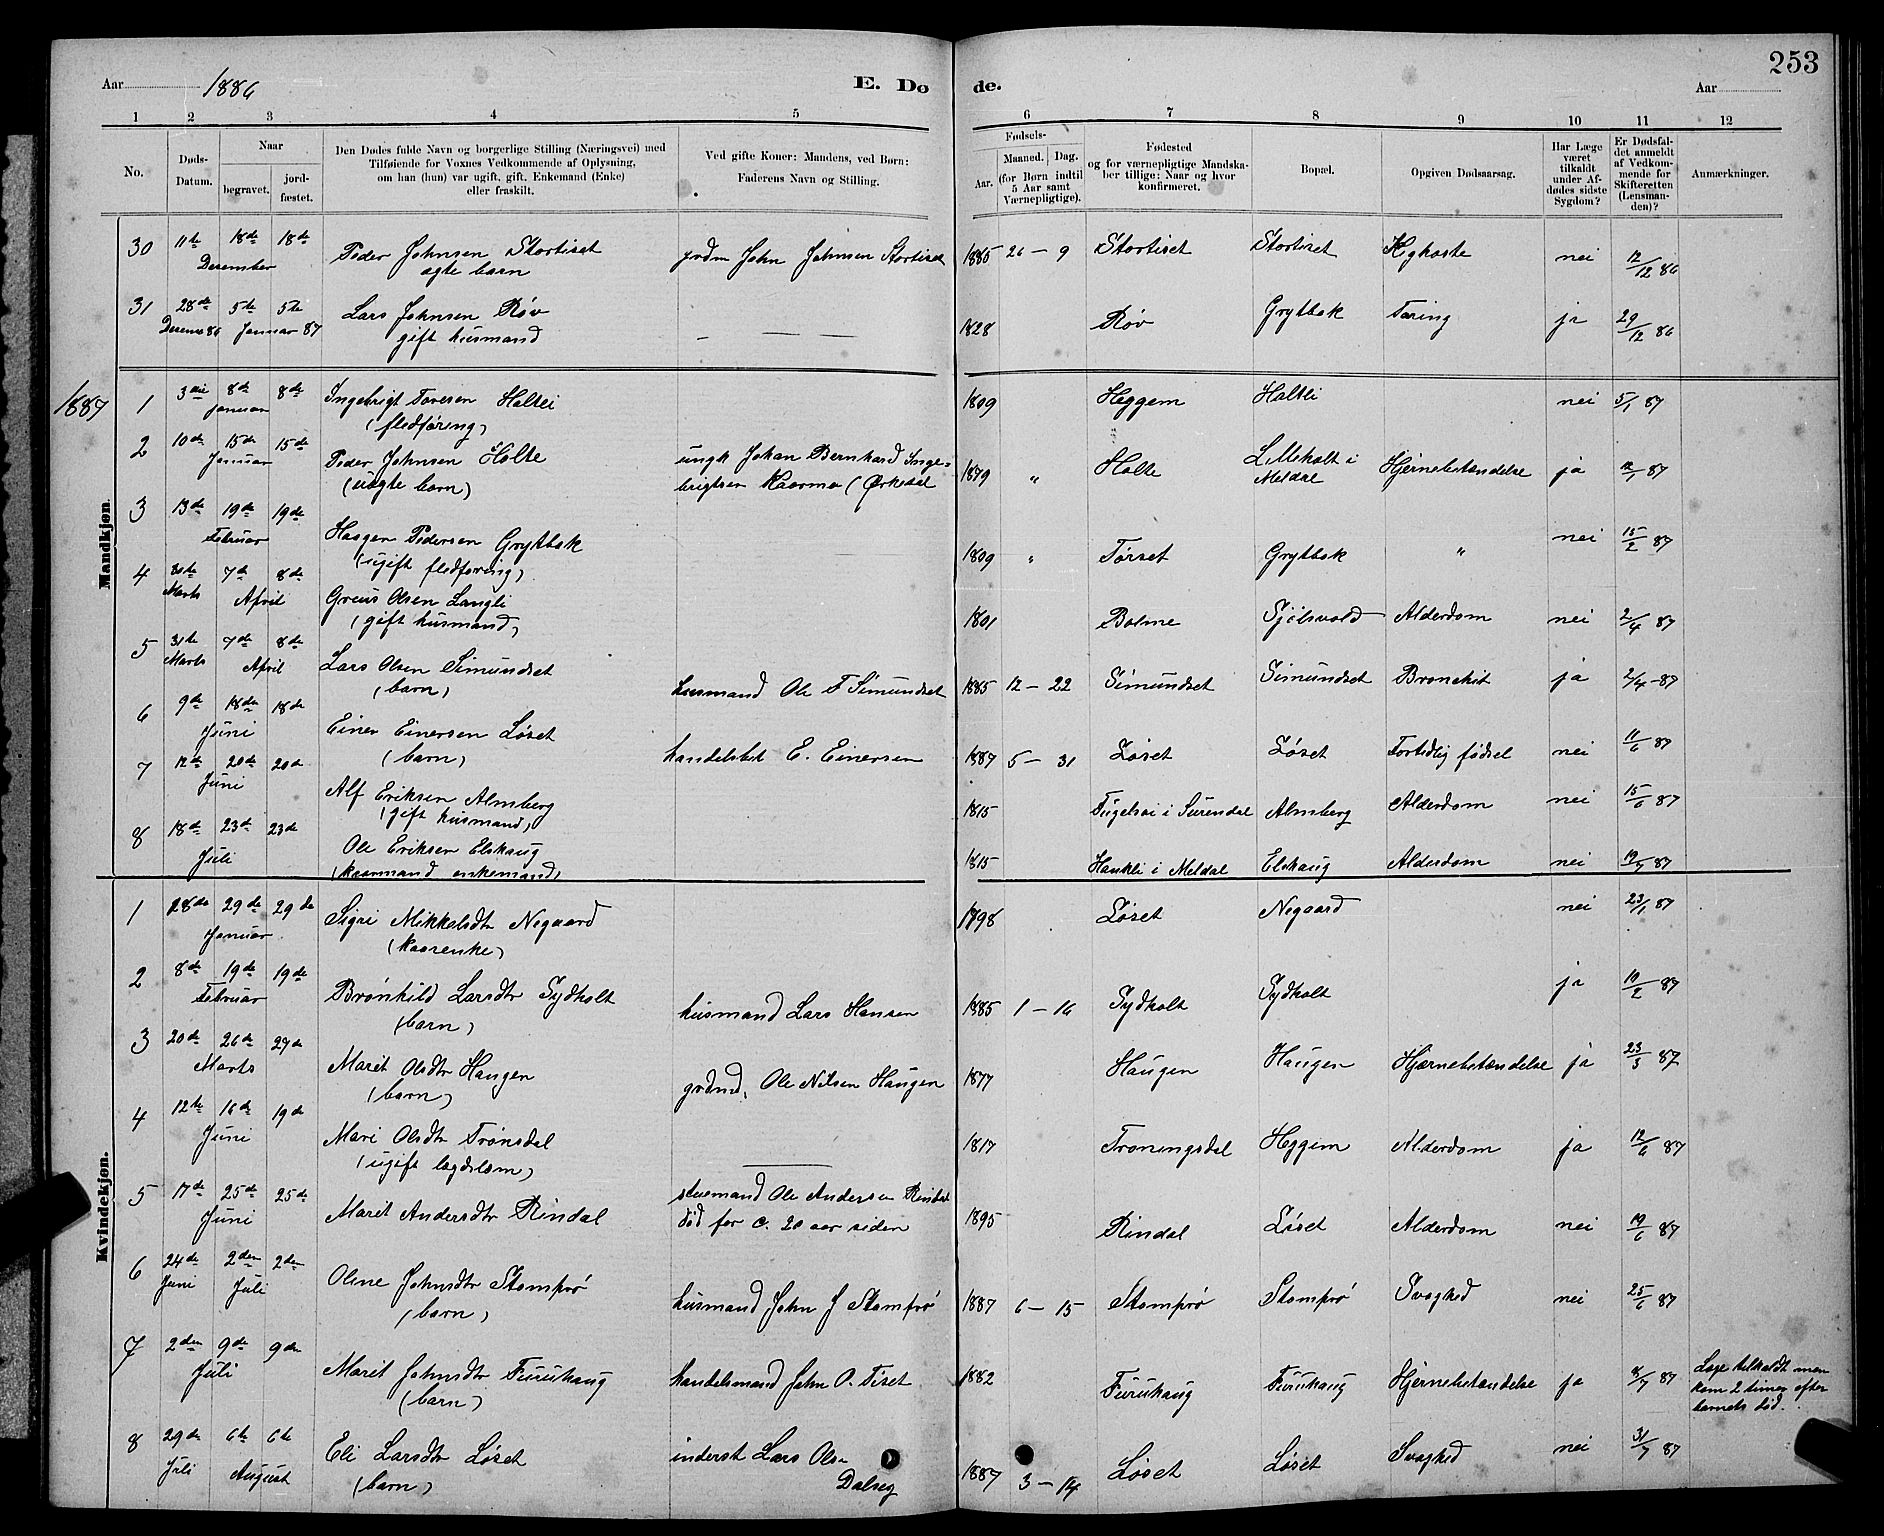 253
Aar 1886 E. Dø
de. Aar
1 2 3 4 5 6 7 8 9 10 11 12
No.
Døds-
Datum.
Naar
begravet.
jord-
fæstet.
Den Dødes fulde Navn og borgerlige Stilling (Næringsvei) med
Tilføiende for Voxnes Vedkommende af Oplysning,
om han (hun) var ugift, gift, Enkemand (Enke)
eller fraskilt.
Ved gifte Koner: Mandens, ved Børn:
Faderens Navn og Stilling.
Fødsels-
Aar.
Maaned. Dag.
(for Børn indtil
5 Aar samt
Værnepligtige).
Fødested
og for værnepligtige Mandska-
ber tillige: Naar og hvor
konfirmeret.
Bopæl.
Opgiven Dødsaarsag.
Har Læge
været
tilkaldt
under Af-
dødes sidste
Sygdom?
Er Dødsfal-
det anmeldt
af Vedkom-
mende for
Skifteretten
(Lensman-
den)?
Anmærkninger.
30 11te 18de 18de Peder Johnsen Stortiset grdm John Johnsen Stortiset 1885 26 – 9 Stortiset Stortiset Kighoste nei 12/12 86
December ægte barn
31 28de 5te 5te Lars Johnsen Røv 1828 Røv Grytbak Tæring ja 29/12 86
Decemb 86 Januar 87 gift husmand
1887
Mandkjøn.
1 3die 8de 8de Ingebrigt Toresen Holtli 1809 Heggem Holtli nei 5/1 87
Januar (fledføring)
2 10de 15de 15de Peder Johnsen Holte ungk Johan Bernhard Inge- 1879 " Holte Lilleholt i Hjernebetændelse ja 12/1 87
Januar (uægte barn) brigtsen Kaarmo (Ørkedal Meldal
3 13de 19de 19de Haagen Pedersen Grytbak 1809 " Tørset Grytbak " nei 15/2 87
Februar (ugift fledføring)
4 30te 7de 8de Greus Olsen Langli 1801 Bolme Sjølsvold Alderdom nei 2/4 87
Marts April (gift husmand)
5 31te 7de 8de Lars Olsen Simundset husmand Ole T Simundset 1885 12 – 22 Simundset Simundset Bronchit ja 2/4 – 87
Marts April (barn)
6 9de 18de 18de Einer Einersen Løset handelsbet E. Einersen 1887 5 – 31 Løset Løset Fortidlig fødsel nei 11/6 87
Juni (barn)
7 12te 20de 20de Alf Eriksen Almberg 1815 Fugelsøi i Surendal Almberg Alderdom nei 15/6 87
Juni (gift husmand)
8 18de 23de 23de Ole Eriksen Elshaug 1815 Haukli i Meldal Elshaug Alderdom nei 19/7 87
Juli (kaarmand enkemand)
Kvindekjøn.
1 28de 29de 29de Sigri Mikkelsdtr Negaard 1798 Løset Negaard nei 23/1 87
Januar (kaarenke)
2 8de 19de 19de Brønhild Larsdtr Sydholt husmand Lars Hansen 1885 1 – 16 Sydholt Sydholt ja 10/2 87
Februar (barn)
3 20de 26de 27de Marit Olsdtr Haugen grdmd. Ole Nilsen Haugen 1877 Haugen Haugen Hjernebetændelse ja 23/3 87
Marts (barn)
4 12te 16de 19de Mari Olsdtr Trønsdal 1817 Troningsdal Heggem Alderdom ja 12/6 87
Juni (ugift lægdslem)
5 17de 25de 25de Marit Andersdtr Rindal stuemand Ole Andersen Rindal 1895 Rindal Løset Alderdom nei 19/6 87
Juni død for c. 20 aar siden
6 24de 2den 2den Oline Johnsdtr Stomprø husmand John J Stomprø 1887 6 – 15 Stomprø Stomprø Svaghed nei 25/6 87
Juni Juli (barn)
7 2den 9de 9de Marit Johnsdtr Furuhaug handelsmand John O. Tiset 1882 Furuhaug Furuhaug Hjernebetændelse ja 8/7 87 Læge tilkaldt men
Juli (barn) kom 2 timer efter
barnets død.
8 29de 6te 6te Eli Larsdtr Løset inderst Lars Olsen 1887 3 – 14 Løset Løset Svaghed nei 31/7 87
Juli August (barn) Dalseg